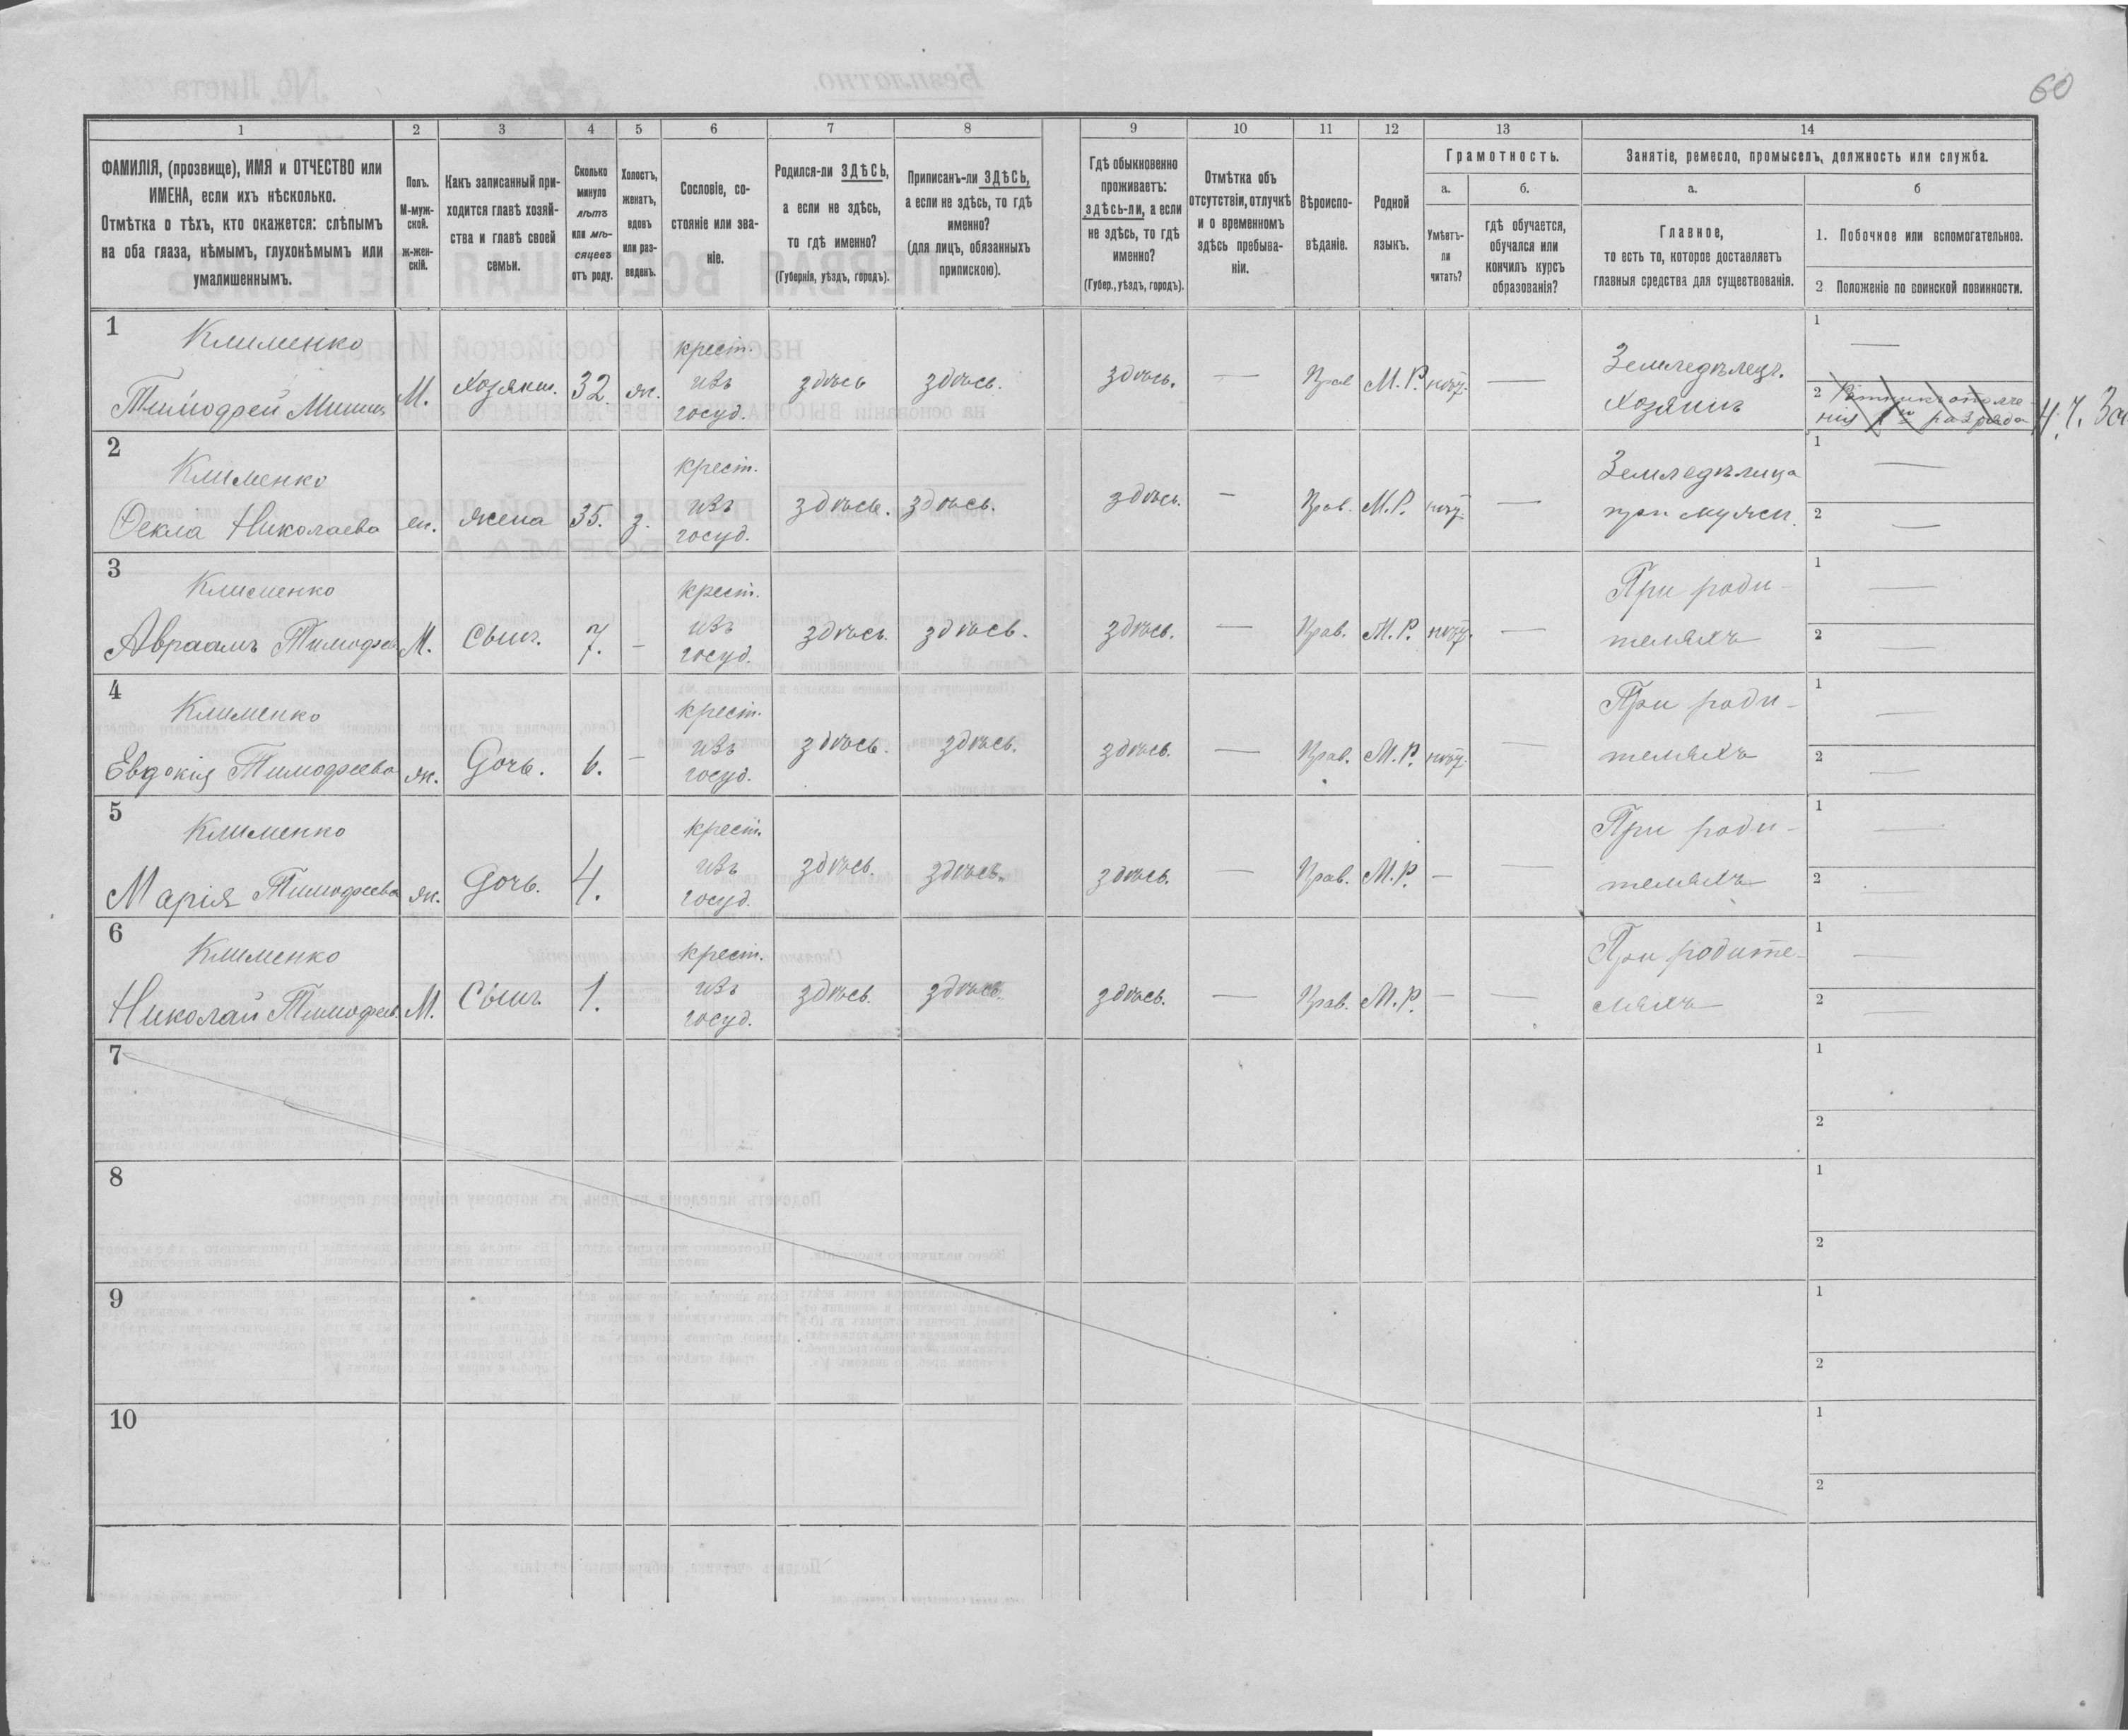 60
1 2 3 4 5 6 7 8 9 10 11 12 13 14
ФАМИЛІЯ, (прозвище), ИМЯ и ОТЧЕСТВО или
ИМЕНА, если ихъ нѣсколько.
Отмѣтка о тѣхъ, кто окажется: слѣпымъ
на оба глаза, нѣмымъ, глухонѣмымъ или
умалишеннымъ.
Полъ.
М-муж-
ской.
ж-жен-
скій.
Какъ записанный при-
ходится главѣ хозяй-
ства и главѣ своей
семьи.
Сколько
минуло
лѣтъ
или мѣ-
сяцевъ
отъ роду.
Холостъ,
женатъ,
вдовъ
или раз-
веденъ.
Сословіе, со-
стояніе или зва-
ніе.
Родился-ли ЗДѢСЬ,
а если не здѣсь,
то гдѣ именно?
(Губернія, уѣздъ, городъ).
Приписанъ-ли ЗДѢСЬ,
а если не здѣсь, то гдѣ
именно?
(для лицъ, обязанныхъ
припискою).
Гдѣ обыкновенно
проживаетъ:
здѣсь-ли, а если
не здѣсь, то гдѣ
именно?
(Губер., уѣздъ, городъ).
Отмѣтка объ
отсутствіи, отлучкѣ
и о временномъ
здѣсь пребыва-
ніи.
Вѣроиспо-
вѣданіе.
Родной
языкъ.
Грамотность.
а.
Умѣетъ-
ли
читать?
б.
гдѣ обучается,
обучался или
кончилъ курсъ
образованія?
Занятіе, ремесло, промыселъ, должность или служба.
а.
Главное,
то есть то, которое доставляетъ
главныя средства для существованія.
б
1. Побочное или вспомогательное.
2 Положеніе по воинской повинности.
1 Клименко
Тимофей Мини
М.
Хозяинъ.
32.
ж.
крест.
изъ
госуд.
здѣсь
здѣсь.
здѣсь.
—
Прав
М.Р.
нѣт.
—
Земледѣлецъ.
Хозяинъ
1 —
2 Ратникъ ополче-
нія 1го разряда
2 Клименко
Фекла Николаева
ж.
жена
35.
з.
крест.
изъ
госуд.
здѣсь.
здѣсь.
здѣсь.
—
Прав.
М.Р.
нѣт.
—
Земледѣлица
при мужѣ.
1 —
2 —
3 Клименко
Авраамъ Тимофеев
М.
Сынъ.
7.
—
крест.
изъ
госуд.
здѣсь.
здѣсь.
здѣсь.
—
Прав.
М.Р.
нѣт.
—
При роди-
теляхъ
1 —
2 —
4 Клименко
Евдокія Тимофеева
ж.
Дочь.
6.
—
крест.
изъ
госуд.
здѣсь.
здѣсь.
здѣсь.
—
Прав.
М.Р.
нѣт.
—
При роди-
теляхъ
1 —
2 —
5 Клименко
Марія Тимофеева
ж.
Дочь.
4.
крест.
изъ
госуд.
здѣсь.
здѣсь.
здѣсь.
—
Прав.
М.Р.
—
—
При роди-
теляхъ
1 —
2 —
6 Клименко
Николай Тимофеев.
М.
Сынъ
1.
крест.
изъ
госуд.
здѣсь.
здѣсь.
здѣсь.
—
Прав.
М.Р.
—
—
При родите-
ляхъ
1 —
2 —
7
1
2
8
1
2
9
1
2
10
1
2